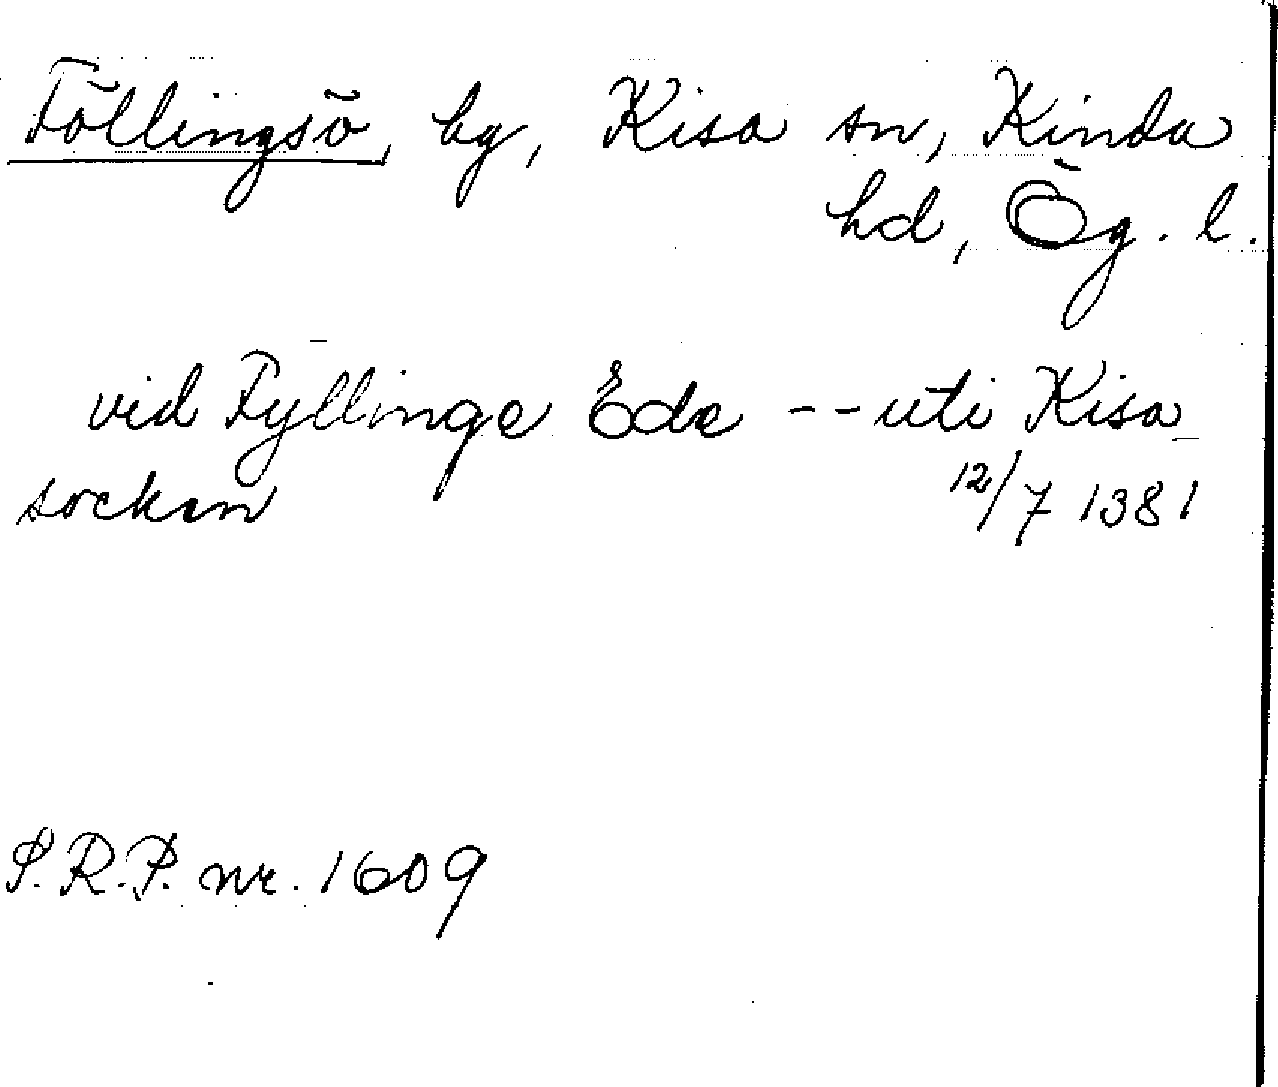 Föllingsö, by, Kisa sn, Kinda
hd, Ög. l.
vid Fyllinge Ede -- uti Kisa
socken 12/7 1381
S.R.P. nr. 1609